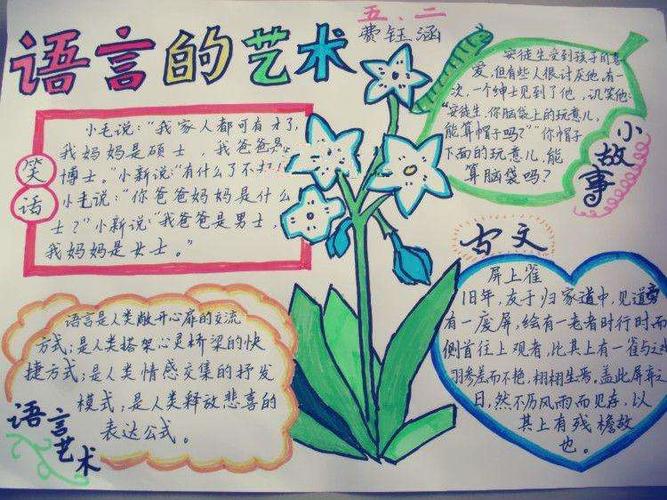 语言的艺术
五、二
费钰涵
笑话
小毛说：“我家人都可有才了，
我妈妈是硕士，我爸爸是
博士。”小新说：“有什么了不
小毛说：“你爸爸妈妈是什么
士？”小新说：“我爸爸是男士，
我妈妈是女士。”
小故事
安徒生受到孩子的喜
爱，但有些人很讨厌他，有一
次，一个绅士见到了他，讥笑他：
“安徒生，你脑袋上的玩意儿，
能算帽子吗？”“你帽子
下面的玩意儿，能
算脑袋吗？
语言艺术
语言是人类敞开心扉的交流
方式；是人类搭架心灵桥梁的快
捷方式；是人类情感交集的抒发
模式；是人类释放悲喜的
表达公式。
古文
屏上雀
旧年，友于归家道中，见道旁
有一废屏，绘有一老者时行时
侧首往上观者，比其上有一雀与
羽参差而不艳，栩栩生焉。盖此屏弃
日，然不历风雨而见存，以
其上有残檐故
也。